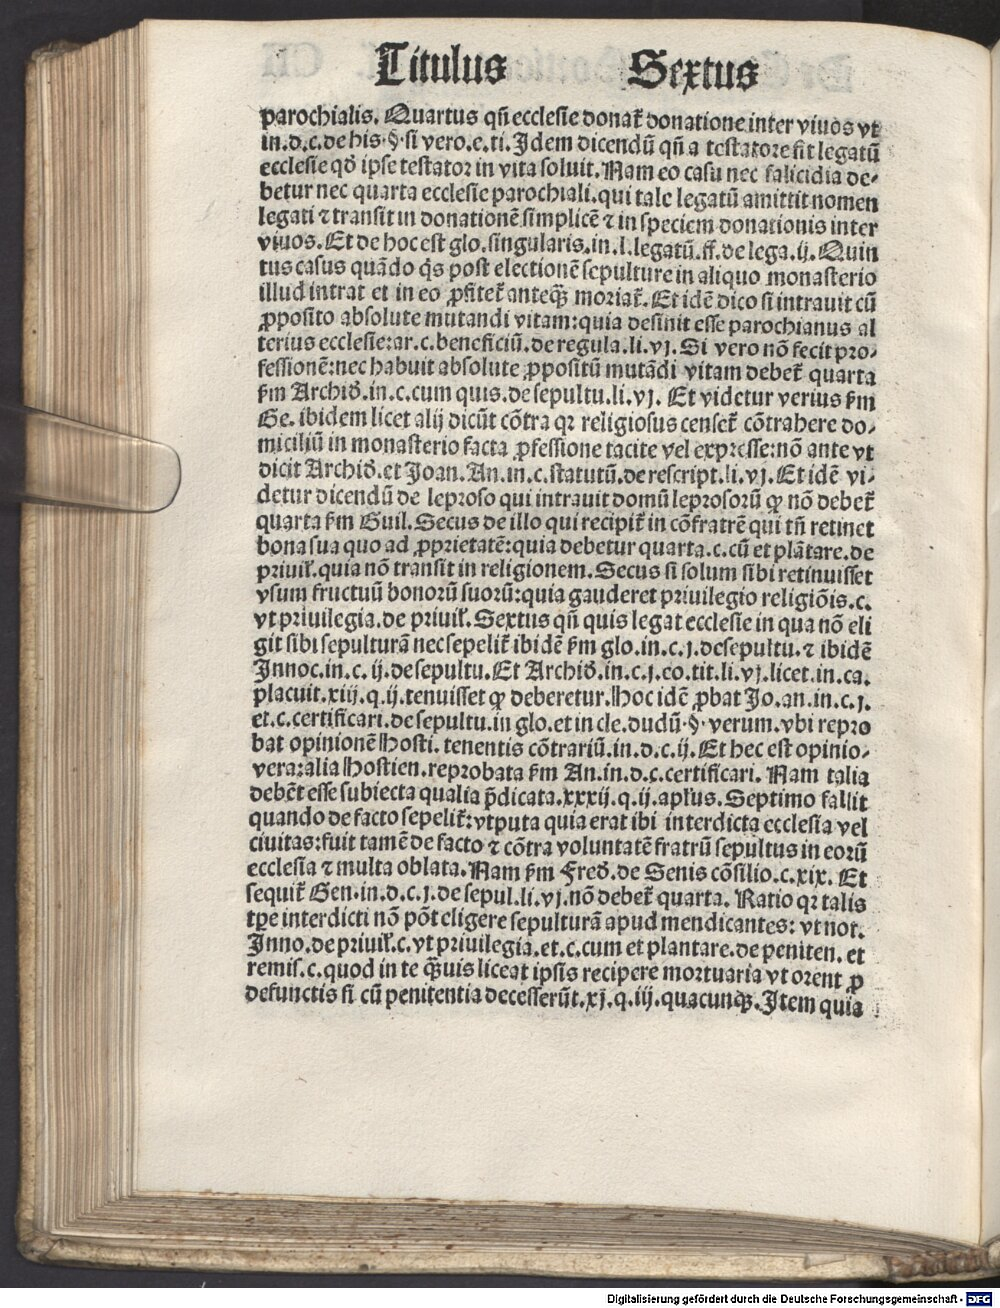 Titulus Sextus
parochialis. Quartus qñ ecclesie donat̃ donatione inter viuos vt
in.d.c.de his.§.si vero.e.ti. Idem dicendũ qñ a testatore fit legatũ
ecclesie qđ ipse testator in vita soluit. Nam eo casu nec falicidia de⸗
betur nec quarta ecclesie parochiali.qui tale legatũ amittit nomen
legati ⁊ transit in donationẽ simplicẽ ⁊ in speciem donationis inter
viuos. Et de hoc est glo.singularis.in.l.legatũ.ff.de lega.ij. Quin
tus casus quãdo q̃s post electionẽ sepulture in aliquo monasterio
illud intrat et in eo ꝓfitet̃ anteq̃ꝫ moriat̃. Et idẽ dico si intrauit cũ
ꝓposito absolute mutandi vitam:quia desinit esse parochianus al
terius ecclesie:ar.c.beneficiũ.de regula.li.vj. Si vero nõ fecit pro⸗
fessionẽ:nec habuit absolute ꝓpositũ mutãdi vitam debet̃ quarta
ẜm Archiđ.in.c.cum quis.de sepultu.li.vj. Et videtur verius ẜm
Ge. ibidem licet alij dicũt cõtra qꝛ religiosus censet̃ cõtrahere do⸗
miciliũ in monasterio facta ꝓfessione tacite vel expresse:nõ ante vt
dicit Archiđ.et Joan.An.in.c.statutũ.de rescript.li.vj. Et idẽ vi⸗
detur dicendũ de leproso qui intrauit domũ leprosorũ ꝙ nõ debet̃
quarta ẜm Guil. Secus de illo qui recipit̃ in cõfratrẽ qui tñ retinet
bona sua quo ad ꝓprietatẽ:quia debetur quarta.c.cũ et plãtare.de
priuil̃.quia nõ transit in religionem. Secus si solum sibi retinuisset
vsum fructuũ bonorũ suorũ:quia gauderet priuilegio religiõis.c.
vt priuilegia.de priuil̃. Sextus qñ quis legat ecclesie in qua nõ eli
git sibi sepulturã nec sepelit̃ ibidẽ ẜm glo.in.c.j.de sepultu. ⁊ ibidẽ
Innoc.in.c.ij.de sepultu. Et Archiđ.in.c.j.eo.tit.li.vj.licet.in.ca.
placuit.xiij.q.ij.tenuisset ꝙ deberetur. Hoc idẽ ꝓbat Jo.an.in.c.j.
et.c.certificari.de sepultu.in glo.et in cle.dudũ.§.verum.vbi repro
bat opinionẽ Hosti. tenentis cõtrariũ.in.d.c.ij. Et hec est opinio⸗
vera:alia Hostien.reprobata ẜm An.in.d.c.certificari. Nam talia
debẽt esse subiecta qualia p̃dicata.xxxij.q.ij.apl̃us. Septimo fallit
quando de facto sepelit̃:vtputa quia erat ibi interdicta ecclesia vel
ciuitas:fuit tamẽ de facto ⁊ cõtra voluntatẽ fratrũ sepultus in eorũ
ecclesia ⁊ multa oblata. Nam ẜm Fređ.de Senis cõsilio.c.xix. Et
sequit̃ Gen.in.d.c.j.de sepul.li.vj.nõ debet̃ quarta. Ratio qꝛ talis
tp̃e interdicti nõ põt eligere sepulturã apud mendicantes: vt not.
Inno.de priuil̃.c.vt priuilegia.et.c.cum et plantare.de peniten. et
remis.c.quod in te q̃ꝫuis liceat ipsis recipere mortuaria vt orent ꝓ
defunctis si cũ penitentia decesserũt.xj.q.iij.quacunqꝫ. Item quia
Digitalisierung gefördert durch die Deutsche Forschungsgemeinschaft - DFG